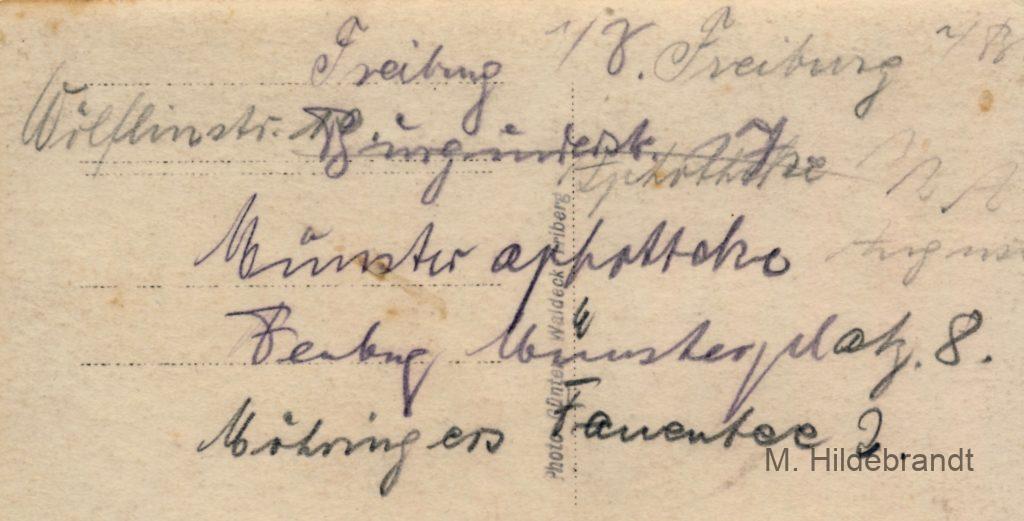 Freiburg V. Freiburg
Wölflinstr. Burgunderstr. 7
Aphotheke
Münster apphotteke
Freiburg Münsterplatz. 8.
Möhringers Frauentee 2.
Photo Günter Waldeck Triberg
M. Hildebrandt